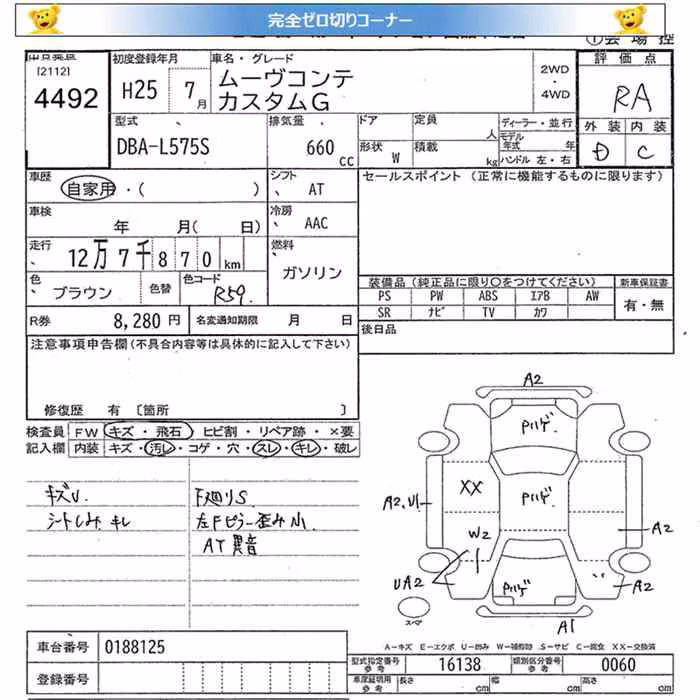 完全ゼロ切りコーナー
①会場控
[2112]
4492
初度登録年月
H25 7月
車名・グレード
ムーヴコンテ
カスタムG
2WD
・
4WD
評価点
RA
外装 内装
D C
型式
DBA-L575S
排気量
660 cc
ドア
形状 W
定員 人
積載 kg
ディーラー・並行
モデル年式 年
ハンドル 左・右
車歴
自家用・( )
シフト
AT
セールスポイント (正常に機能するものに限ります)
車検
年 月( 日)
冷房
AAC
走行
12万7千870km
燃料
ガソリン
色
ブラウン
色替
色コード
R59
装備品 (純正品に限り○をつけてください)
新車保証書
PS PW ABS エアB AW
SR ナビ TV カワ
有・無
R券 8,280円
名変通知期限 月 日
後日品
注意事項申告欄 (不具合内容等は具体的に記入して下さい)
修復歴 有 〔箇所 〕
検査員
記入欄
FW キズ・飛石・ヒビ割・リペア跡・×要
内装 キズ・汚レ・コゲ・穴・スレ・キレ・破レ
キズU.
シートしみ キレ
F廻りS
左Fピラー歪み小
AT異音
A2
Pハゲ
XX
Pハゲ
A2,U1
W2
A2
UA2
Pハゲ
A2
スペア
A1
A-キズ E-エクボ U-凹み W-補修跡 S-サビ C-腐食 XX-交換済
車台番号 0188125
登録番号
型式指定番号 参考 16138
類別区分番号 参考 0060
車庫証明用 参考
長さ cm
幅 cm
高さ cm